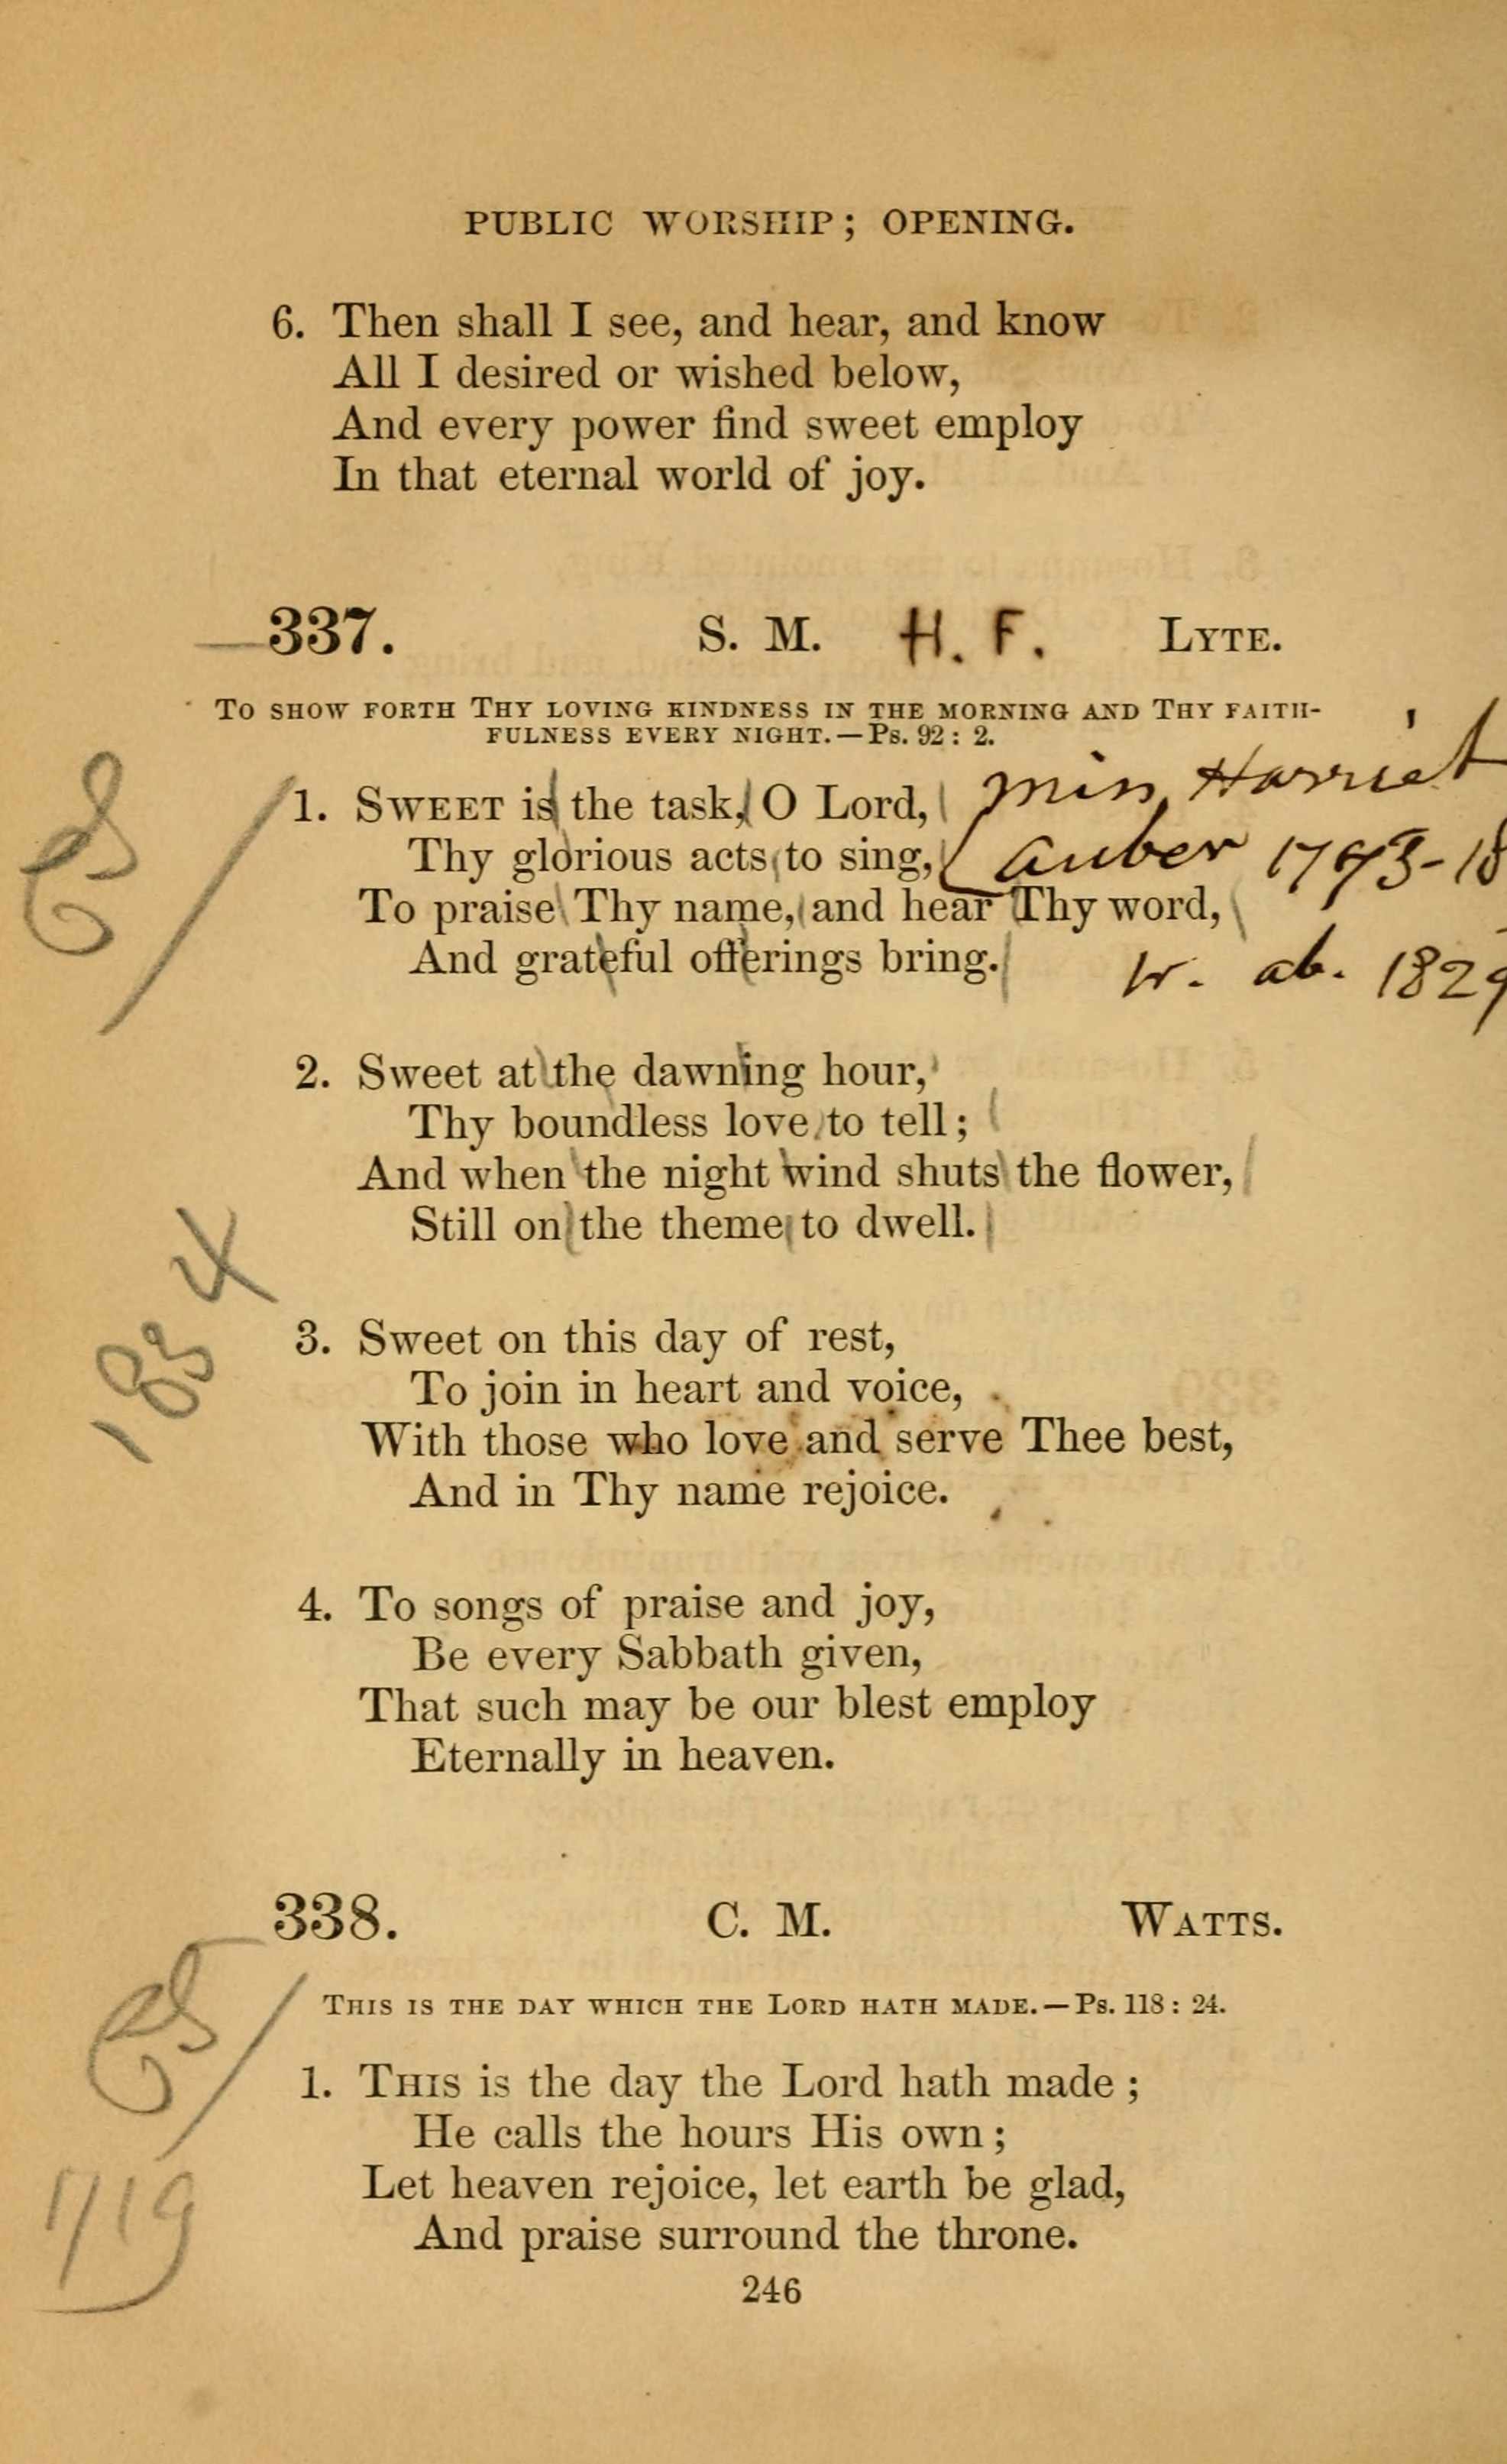 PUBLIC WORSHIP; OPENING.
6. Then shall I see, and hear, and know
All I desired or wished below,
And every power find sweet employ
In that eternal world of joy.
337. S. M. H. F. LYTE.
TO SHOW FORTH THY LOVING KINDNESS IN THE MORNING AND THY FAITH-
FULNESS EVERY NIGHT.—Ps. 92: 2.
Miss Harriet
1. SWEET is the task, O Lord,
Auber 1793-18
Thy glorious acts to sing,
To praise Thy name, and hear Thy word,
And grateful offerings bring.
W. ab. 1829
2. Sweet at the dawning hour,
Thy boundless love to tell;
And when the night wind shuts the flower,
Still on the theme to dwell.
1834
3. Sweet on this day of rest,
To join in heart and voice,
With those who love and serve Thee best,
And in Thy name rejoice.
4. To songs of praise and joy,
Be every Sabbath given,
That such may be our blest employ
Eternally in heaven.
338. C. M. WATTS.
THIS IS THE DAY WHICH THE LORD HATH MADE.—Ps. 118: 24.
1. THIS is the day the Lord hath made;
He calls the hours His own;
Let heaven rejoice, let earth be glad,
And praise surround the throne.
1719
246